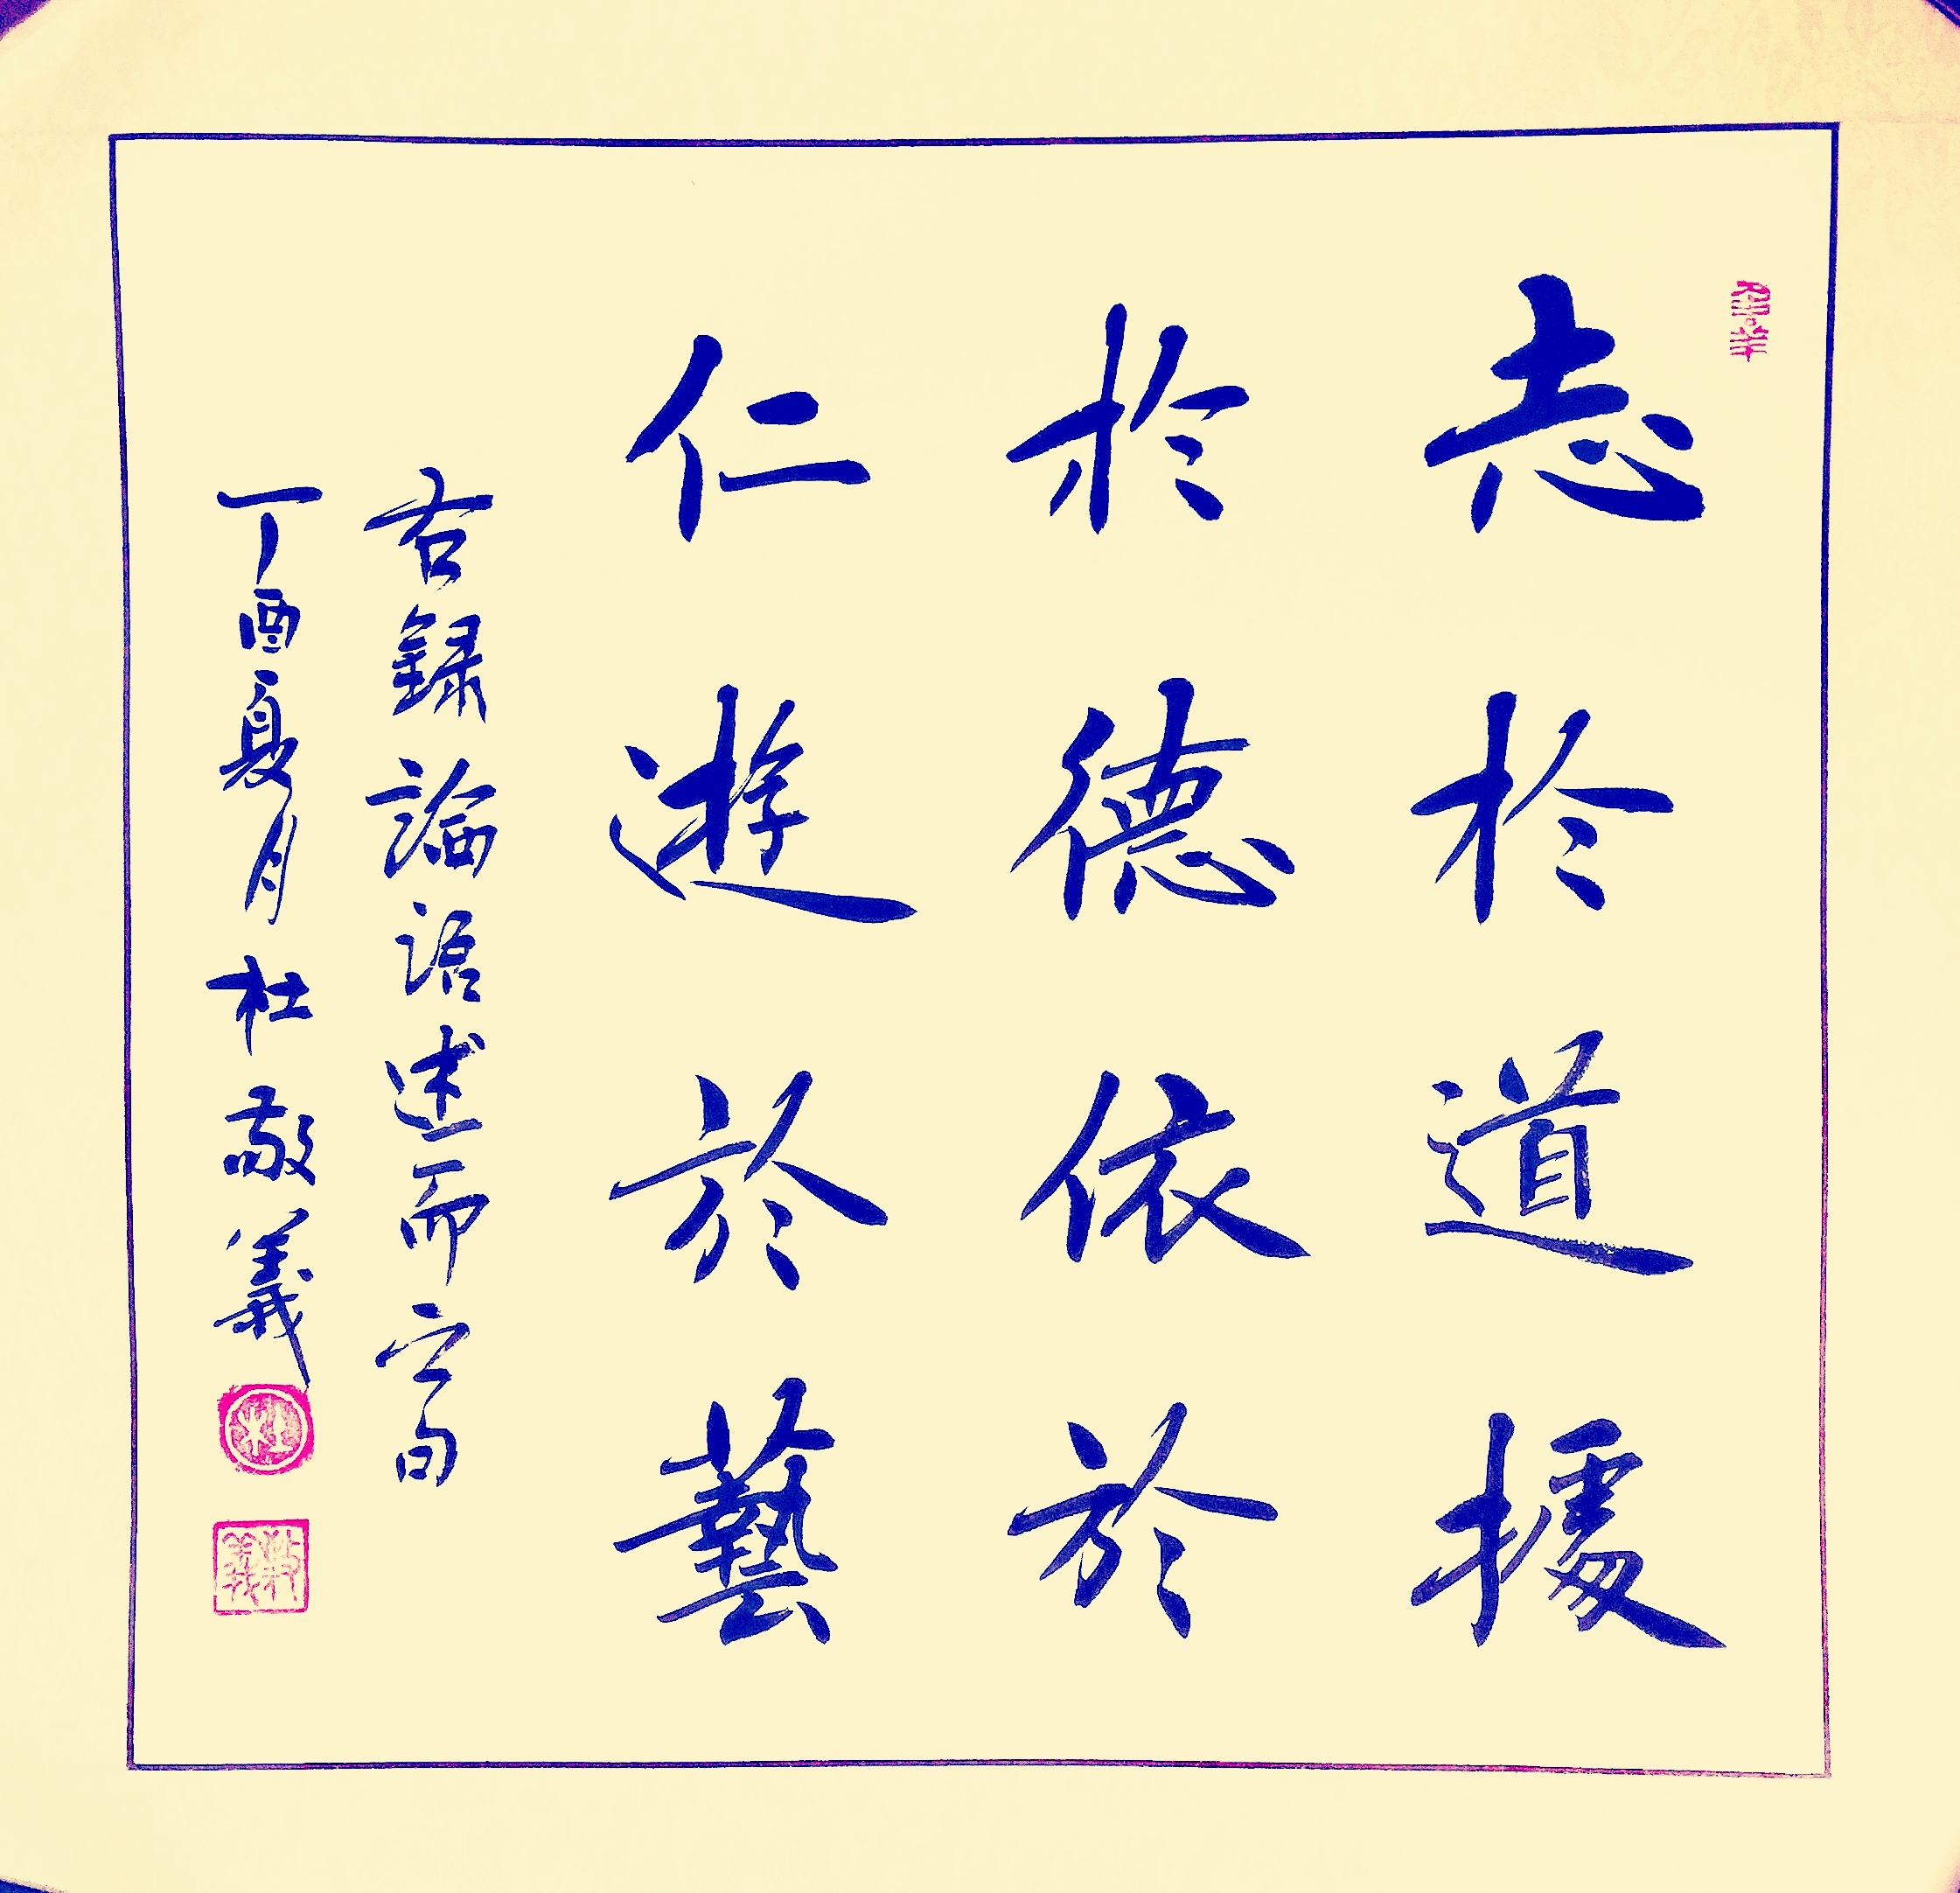 志於道據
於德依於
仁遊於藝
右録論語述而之句
丁酉夏月杜敬義
杜
敬義